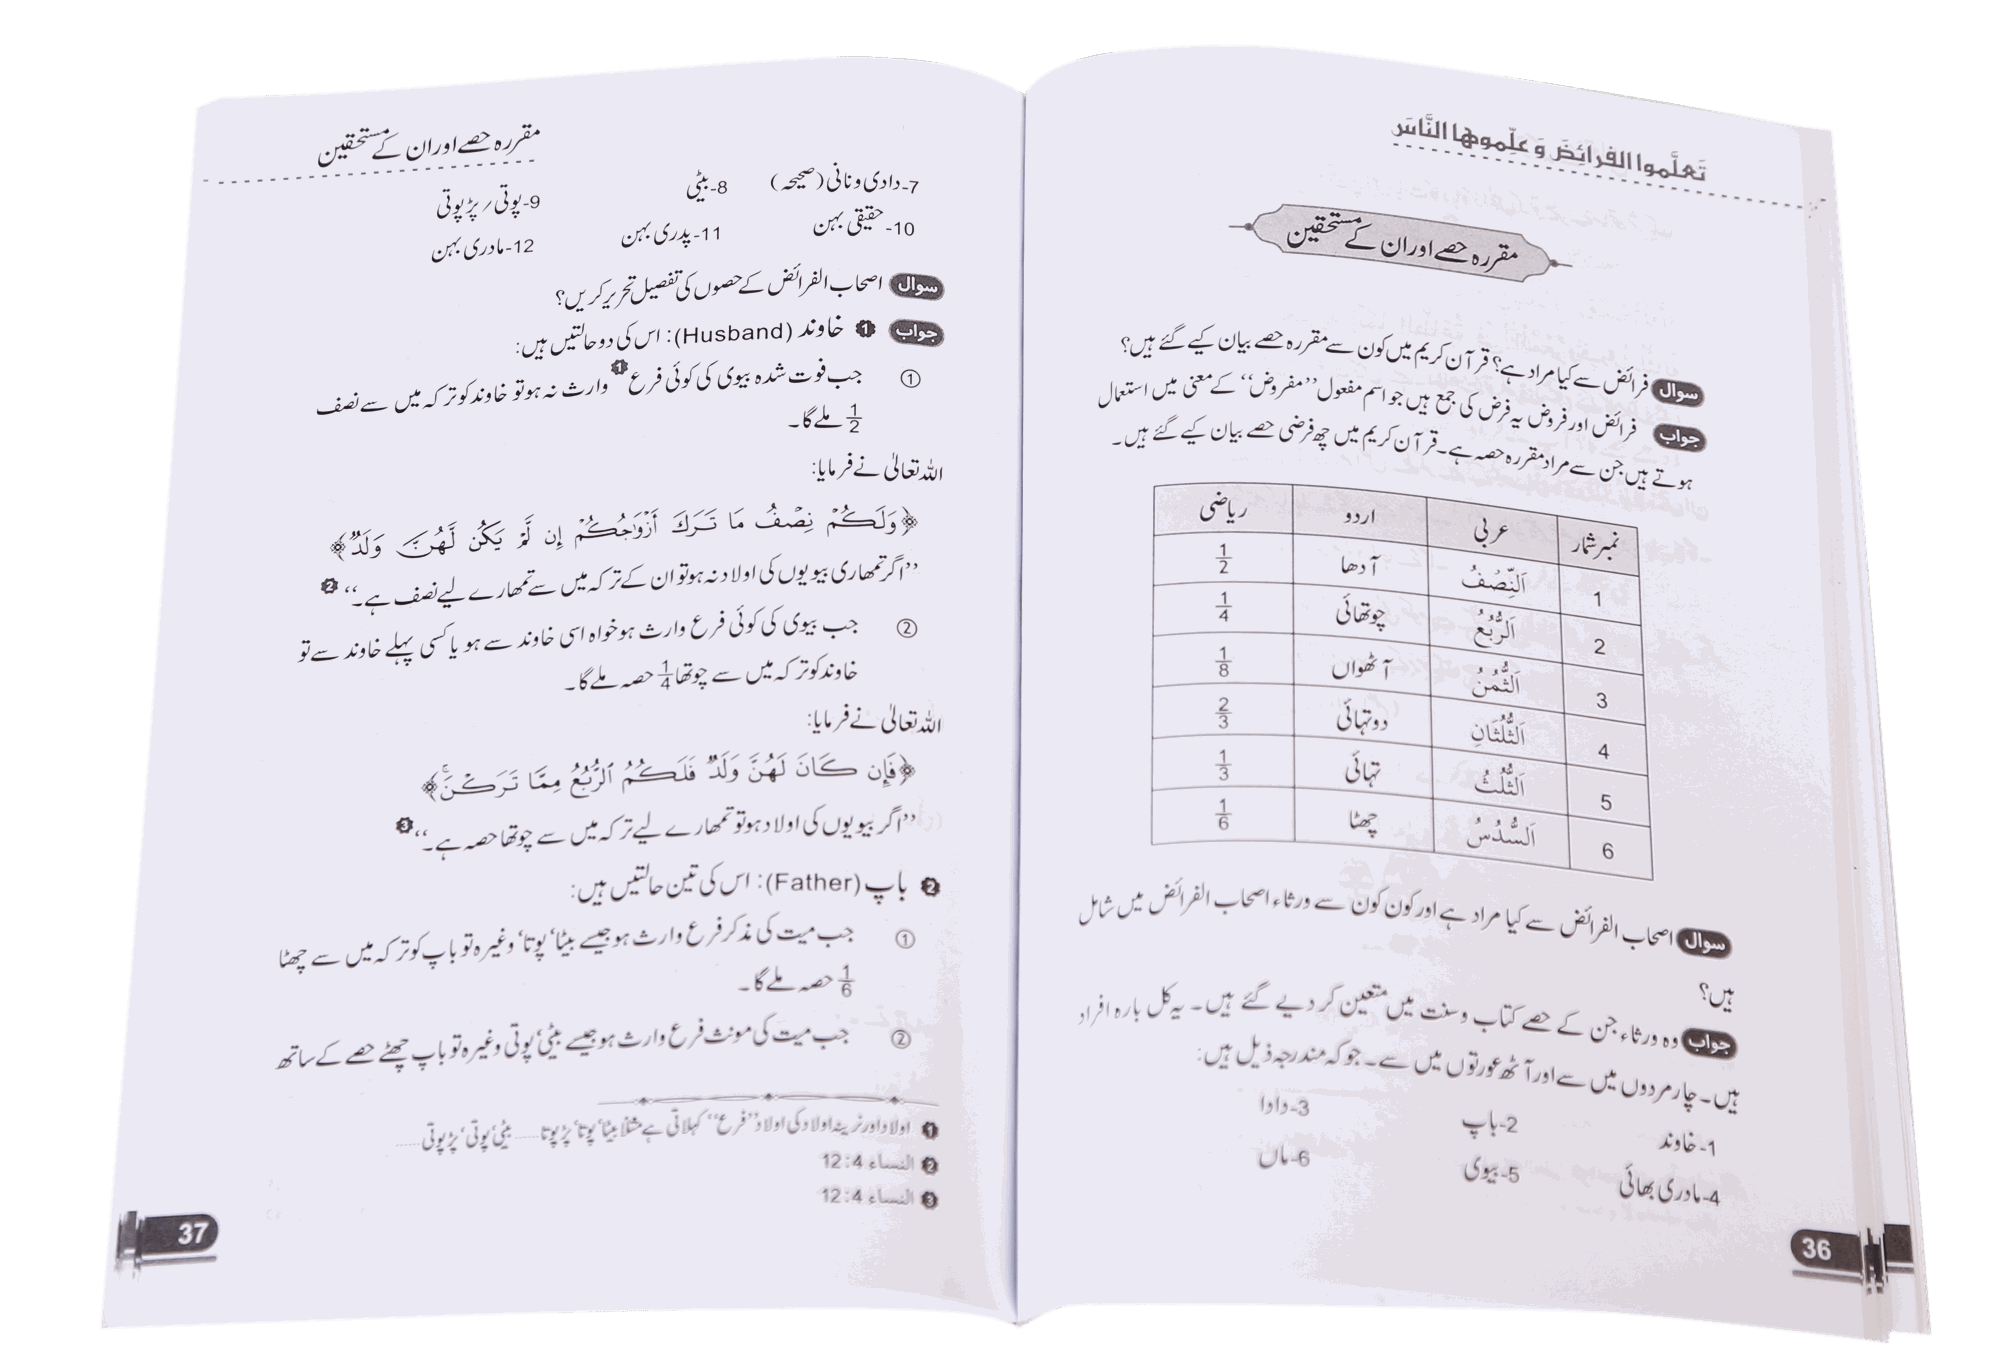 تَعلَّموا الفرائِضَ وَ علِّموها النَّاسَ
مقررہ حصے اور ان کے مستحقین
سوال فرائض سے کیا مراد ہے؟ قرآن کریم میں کون سے مقررہ حصے بیان کیے گئے ہیں؟
جواب فرائض اور فروض یہ فرض کی جمع ہیں جو اسم مفعول ’’مفروض‘‘ کے معنی میں استعمال
ہوتے ہیں جن سے مراد مقررہ حصہ ہے۔ قرآن کریم میں چھ فرضی حصے بیان کیے گئے ہیں۔
نمبر شمار عربی اردو ریاضی
1 اَلنِّصْفُ آدھا 1/2
2 اَلرُّبُعُ چوتھائی 1/4
3 اَلثُّمُنُ آٹھواں 1/8
4 اَلثُّلُثَانِ دو تہائی 2/3
5 اَلثُّلُثُ تہائی 1/3
6 اَلسُّدُسُ چھٹا 1/6
سوال اصحاب الفرائض سے کیا مراد ہے اور کون کون سے ورثاء اصحاب الفرائض میں شامل
ہیں؟
جواب وہ ورثاء جن کے حصے کتاب و سنت میں متعین کر دیے گئے ہیں۔ یہ کل بارہ افراد
ہیں۔ چار مردوں میں سے اور آٹھ عورتوں میں سے۔ جو کہ مندرجہ ذیل ہیں:
1-خاوند 2-باپ 3-دادا
4-مادری بھائی 5-بیوی 6-ماں
36
مقررہ حصے اور ان کے مستحقین
7-دادی و نانی (صحیحہ) 8-بیٹی 9-پوتی/ پڑپوتی
10-حقیقی بہن 11-پدری بہن 12-مادری بہن
سوال اصحاب الفرائض کے حصوں کی تفصیل تحریر کریں؟
جواب 1 خاوند (Husband): اس کی دو حالتیں ہیں:
① جب فوت شدہ بیوی کی کوئی فرع 1 وارث نہ ہو تو خاوند کو ترکہ میں سے نصف
1/2 ملے گا۔
اللہ تعالیٰ نے فرمایا:
﴿وَلَكُمْ نِصْفُ مَا تَرَكَ أَزْوَٰجُكُمْ إِن لَّمْ يَكُن لَّهُنَّ وَلَدٌ﴾
’’اگر تمھاری بیویوں کی اولاد نہ ہو تو ان کے ترکہ میں سے تمھارے لیے نصف ہے۔‘‘ 2
② جب بیوی کی کوئی فرع وارث ہو خواہ اسی خاوند سے ہو یا کسی پہلے خاوند سے تو
خاوند کو ترکہ میں سے چوتھا 1/4 حصہ ملے گا۔
اللہ تعالیٰ نے فرمایا:
﴿فَإِن كَانَ لَهُنَّ وَلَدٌ فَلَكُمُ ٱلرُّبُعُ مِمَّا تَرَكْنَ ۚ﴾
’’اگر بیویوں کی اولاد ہو تو تمھارے لیے ترکہ میں سے چوتھا حصہ ہے۔‘‘ 3
2 باپ (Father): اس کی تین حالتیں ہیں:
① جب میت کی مذکر فرع وارث ہو جیسے بیٹا‘ پوتا‘ وغیرہ تو باپ کو ترکہ میں سے چھٹا
1/6 حصہ ملے گا۔
② جب میت کی مونث فرع وارث ہو جیسے بیٹی‘ پوتی وغیرہ تو باپ چھٹے حصے کے ساتھ
1 اولاد اور نرینہ اولاد کی اولاد ’’فرع‘‘ کہلاتی ہے مثلا بیٹا‘ پوتا‘ پڑپوتا...... بیٹی‘ پوتی‘ پڑپوتی......
2 النساء 12:4
3 النساء 12:4
37